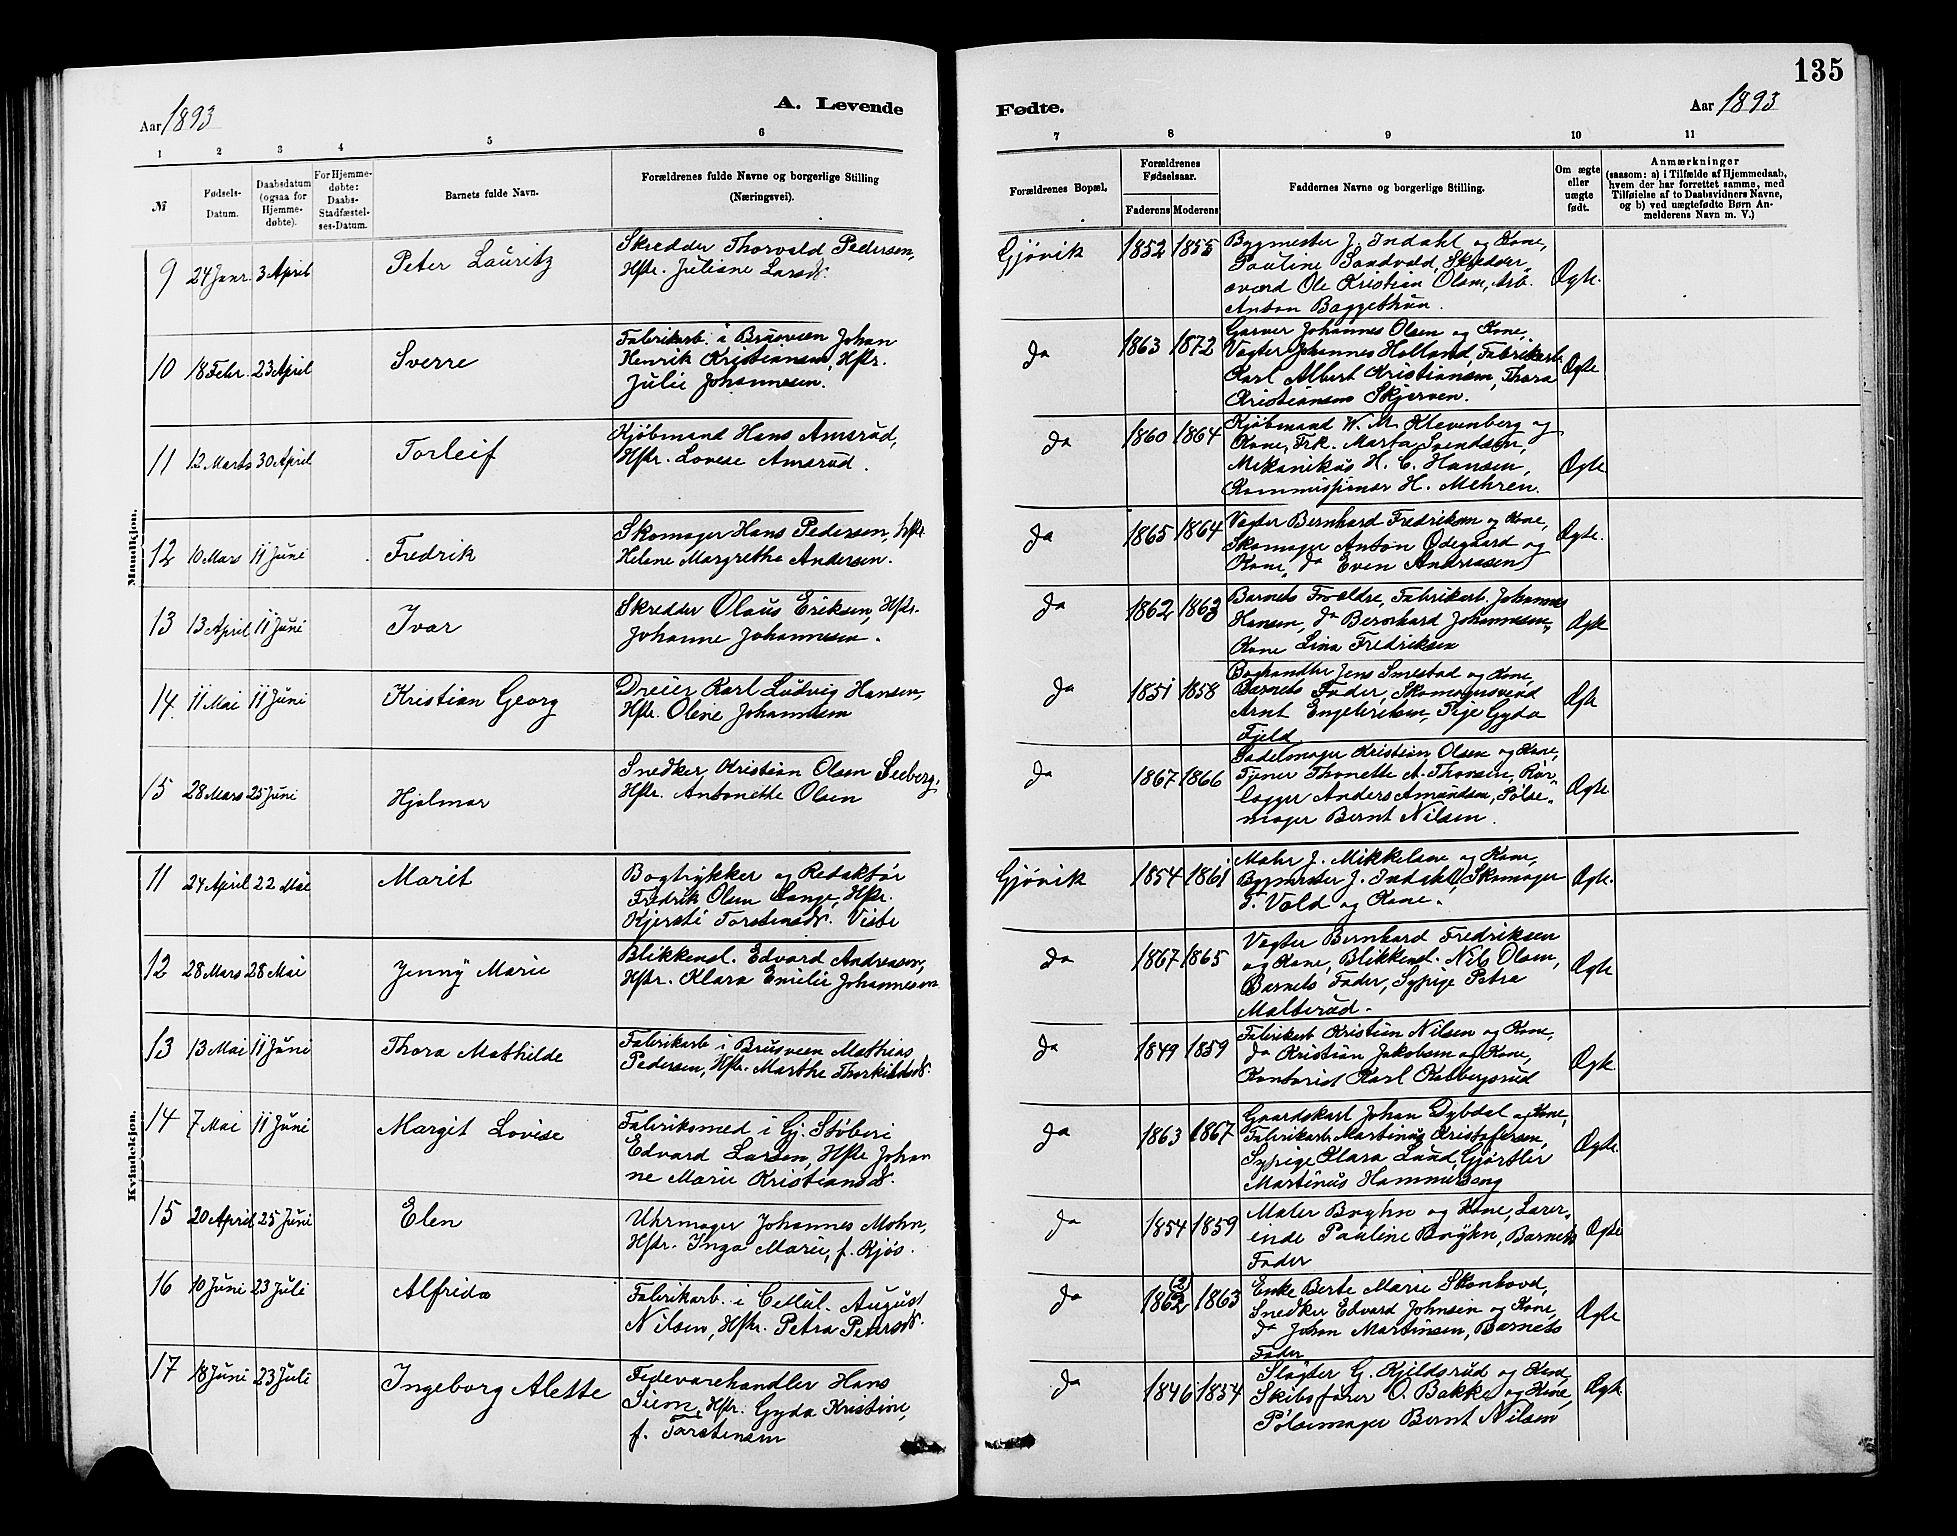 135
Aar 1893
A. Levende
Fødte.
Aar 1893
1 2 3 4 5 6 7 8 9 10 11
№
Fødsels-
Datum.
Daabsdatum
(ogsaa for
Hjemme-
døbte).
For Hjemme-
døbte:
Daabs-
Stadfæstel-
ses-Datum.
Barnets fulde Navn.
Forældrenes fulde Navne og borgerlige Stilling
(Næringsvei).
Forældrenes Bopæl.
Forældrenes
Fødselsaar.
Faderens Moderens
Faddernes Navne og borgerlige Stilling.
Om ægte
eller
uægte
født.
Anmærkninger
(saasom: a) i Tilfælde af Hjemmedaab,
hvem der har forrettet samme, med
Tilføielse af to Daabsvidners Navne,
og b) ved uægtefødte Børn An-
melderens Navn m. V.)
Mandkjøn.
9 24 Janr. 3 April Peter Lauritz
Skredder Thorvald Pedersen,
Hstr. Juliane Larsd.
Gjøvik 1852 1855
Bygmester J. Indahl og Kone,
Pauline Sandvold, Skredder-
svend Ole Kristian Olsen, Arb.
Anton Baggethun.
Ægte.
10 18 Febr. 23 April Sverre
Fabrikarb. i Brusveen Johan
Henrik Kristiansen, Hstr.
Julie Johannesen.
da 1863 1872
Garver Johannes Olsen og Kone,
Vagter Johannes Holland, Fabrikarb.
Karl Albert Kristiansen, Thora
Kristiansens Skjerven.
Ægte
11 12 Marts 30 April Torleif
Kjøbmand Hans Amsrud,
Hstr. Lovise Amsrud.
da 1860 1864
Kjøbmand W. M. Klevenberg og
Kone, Frk. Marta Svendsen,
Mekanikus H. C. Hansen,
Kommissionær H. Mehren.
Ægte
12 10 Mars 11 Juni Fredrik
Skomager Hans Pedersen, Hstr.
Helene Margrethe Andersen.
da 1865 1864
Vagter Bernhard Fredriksen og Kone,
Skomager Anton Ødegaard og
Kone, da Even Andreasen
Ægte.
13 13 April 11 Juni Ivar
Skredder Olaus Eriksen, Hstr.
Johanne Johannesen.
da 1862 1863
Barnets Forældre, Fabrikarb. Johannes
Hansen, da Bernhard Johannesen,
Kone Lina Fredriksen
Ægte
14. 11 Mai 11 Juni Kristian Georg
Dreier Karl Ludvig Hansen,
Hstr. Oline Johannesen
da 1851 1858
Boghandler Jens Smestad og Kone,
Barnets Fader, Skomagersvend
Arnt Engebretsen, Pige Gyda
Fjeld
Ægte
15 28 Mars 25 Juni Hjalmar
Snedker Kristian Olsen Seeberg,
Hstr. Antonette Olsen
da 1867 1866
Sadelmager Kristian Olsen og Kone,
Tjener Thonette A. Thorsen, Rør-
lægger Anders Amundsen, Pølse-
mager Bernt Nilsen.
Ægte
Kvindekjøn.
11 24 April 22 Mai Marit
Bogtrykker og Redaktør
Fredrik Olsen Lange, Hstr.
Kjersti Torstensd. Viste
Gjøvik 1854 1861
Maler J. Mikkelsen og Kone,
Bygmester J. Indahl, Skomager
T. Vold og Kone.
Ægte.
12 28 Mars 28 Mai Jenny Marie
Blikkensl. Edvard Andreasen,
Hstr. Klara Emilie Johannesen
da 1867 1865
Vagter Bernhard Fredriksen
og Kone, Blikkensl. Nils Olsen,
Barnets Fader, Sypige Petra
Malterud.
Ægte
13 13 Mai 11 Juni Thora Mathilde
Fabrikarb. i Brusveen Mathias
Pedersen, Hstr. Marthe Thorkildsd.
da 1849 1859
Fabrikarb. Kristian Nilsen og Kone,
da Kristian Jakobsen og Kone,
Kontorist Karl Kalbergsrud
Ægte
14 7 Mai 11 Juni Margit Lovise
Fabriksmed i Gj. Støberi
Edvard Larsen, Hstr. Johan
ne Marie Kristiansd.
da 1863 1867
Gaardskarl Johan Dybdal og Kone,
Fabrikarb. Martinus Kristofersen,
Sypige Klara Lund, Gjørtler
Martinus Hammerseng
Ægte.
15 20 April 25 Juni Elen
Uhrmager Johannes Mohn,
Hstr. Inga Marie, f. Kjøs.
da 1854 1859
Maler Boyhn og Kone, Lærer-
inde Pauline Boyhn, Barnets
Fader
Ægte
16 10 Juni 23 Juli Alfrida
Fabrikarb. i Cellul. August
Nilsen, Hstr. Petra Petersd.
da 1862 (2) 1863
Enke Berte Marie Skonhovd,
Snedker Edvard Johnsen og Kone,
da Johan Martinsen, Barnets
Fader
Ægte
17 18 Juni 23 Juli Ingeborg Alette
Fedevarehandler Hans
Sien, Hstr. Gyda Kristine,
f. Torstensen
da 1846 1854
Slagter G. Kjeldsrud og Kone,
Skibsfører O. Bakke og Kone,
Pølsemager Bernt Nilsen
Ægte